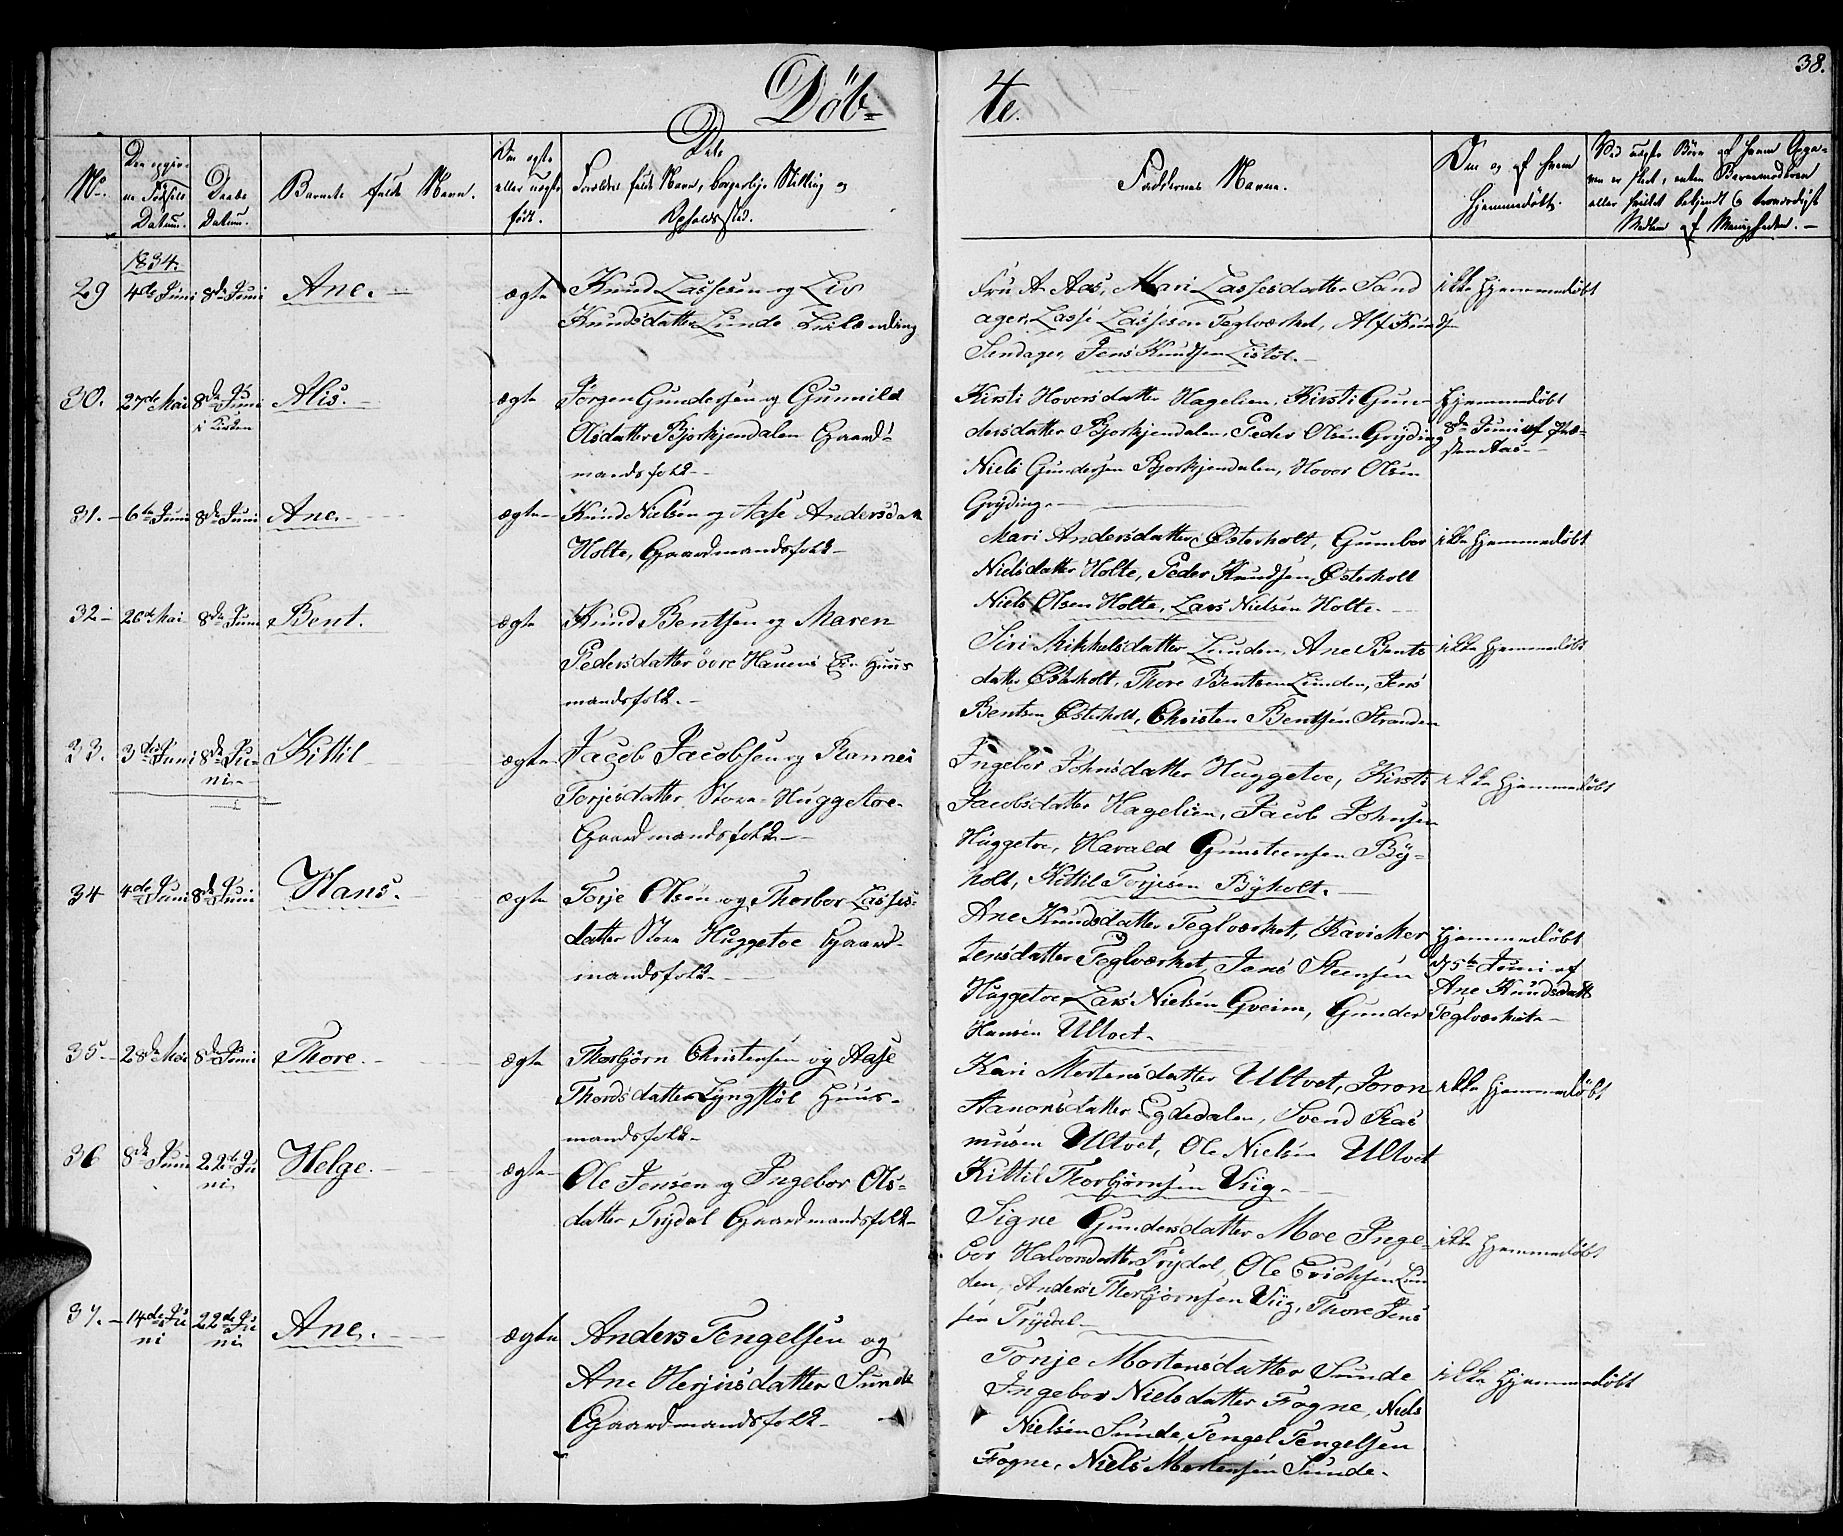 38.
Döb-
4e.
No.
Den opgiv-
ne Födsels
Datum.
Daabs
Datum.
Barnets fulde Navn.
Om ægte
eller uægte
födt.
Dets
Foreldres fulde Navn, borgerlige Stilling og
Opholdssted.
Faddernes Navne.
Om og af hvem
hjemmedöbt.
1834.
29
4de Juni
8de Juni
Ane.
ægte
Knud Lassesen og Liv
Knudsdatter Lunde
Fru A. Aas, Mari Lassesdatter Sand
ager, Lasse Lassesen Teglværket, Alf Knuds
Sendager, Jens Knudsen
ikke hjemmedöbt
30.
27de Mai
8de Juni
i Kirken
Alis.
ægte
Jörgen Gundersen og Gunnild
Olsdatter Bjorkjendalen Gaard-
mandsfolk
Kirsti Hovorsdatter Hagelien, Kirsti Gun-
dersdatter Bjorkjendalen, Peder Olsen Gryding
Niels Gundersen Bjorkjendalen, Hovor Olsen
Gryding
hjemmedöbt
8de Juni af Præ-
sten Aas
31.
6te Juni
8de Juni
Ane.
ægte
Knud Nielsen og Aase Andersdatt
Holte, Gaardmandsfolk
Mari Andersdatter Österholt, Gumbor
Nielsdatter Holte, Peder Knudsen Österholt
Niels Olsen Holte, Lars Nielsen Holte.
ikke hjemmedöbt
32
26de Mai
8de Juni
Bent.
ægte
Knud Bentsen og Maren
Pedersdatter övre Hauens Eie Huus
mandsfolk.
Siri Mikkelsdatter Lunden, Ane Bents
datter Österholt, Thore Bentsen Lunden, Jens
Bentsen Österholt, Christen Bentsen Stranden
ikke hjemmedöbt
33.
3die Juni
8de Ju-
ni
Kittil
ægte
Jacob Jacobsen og Rannei
Torjesdatter Store Huggetoe
Gaardmandsfolk
Ingebor Johnsdatter Huggetoe, Kirsti
Jacobsdatter Hagelien, Jacob Johnsen
Huggetoe, Havald Gunsteensen Bÿ-
holt, Kittil Torjesen Bÿholt.
ikke hjemmedöbt
34
4de Juni
8de Juni
Hans.
ægte
Torje Olsen og Thorbor Lasses-
datter Store Huggetoe Gaard-
mandsfolk
Ane Knudsdatter Teglværket, Kari Mor
tensdatter Teglværket, Jens Steensen
Huggetoe, Lars Nielsen Gveim, Gunder
Hansen Ultvet.
hjemmedöbt
d 5te Juni af
Ane Knudsdatt
Teglværket
35
28de Mai
8de Juni
Thore.
ægte
Thorbjörn Christensen og Aase
Thordsdatter Lyngstöl Huus-
mandsfolk
Kari Mortensdatter Ultvet, Joron
Aanonsdatter Egdedalen, Svend Ras
musen Ultvet, Ole Nielsen Ultvet
Kittil Thorbjörnsen Viig
ikke hjemmedöbt
36
8de Juni
22de Ju
ni
Helge.
ægte
Ole Jensen og Ingebor Ols-
datter Trydal Gaardmandsfolk
Signe Gundersdatter Moe Inge-
bor Halvorsdatter Trydal, Ole Erichsen Lun
den, Anders Thorbjörnsen Viig, Thore Jens
sen Trydal
ikke hjemmedöbt
37.
14de Ju
ni
22de Ju
ni
Ane.
ægte
Anders Tengelsen og
Ane Herjusdatter Sunde
Gaardmandsfolk
Tonje Mortensdatter Sunde
Ingebor Nielsdatter Fogne, Niels
Nielsen Sunde, Tengel Tengelsen
Fogne, Niels Mortensen Sunde.
ikke hjemmedöbt